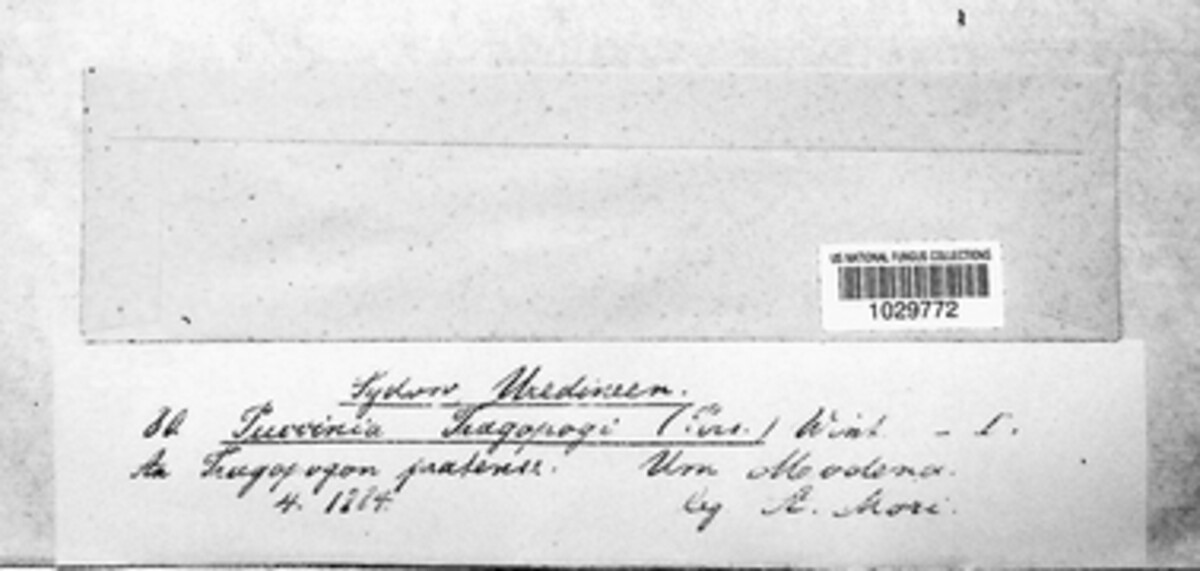 US NATIONAL FUNGUS COLLECTIONS
1029772
Sydow Uredineen.
80 Puccinia Tragopogi (Pers.) Wint. - I.
An Tragopogon pratensis. Um Modena.
4. 1884. leg A. Mori.